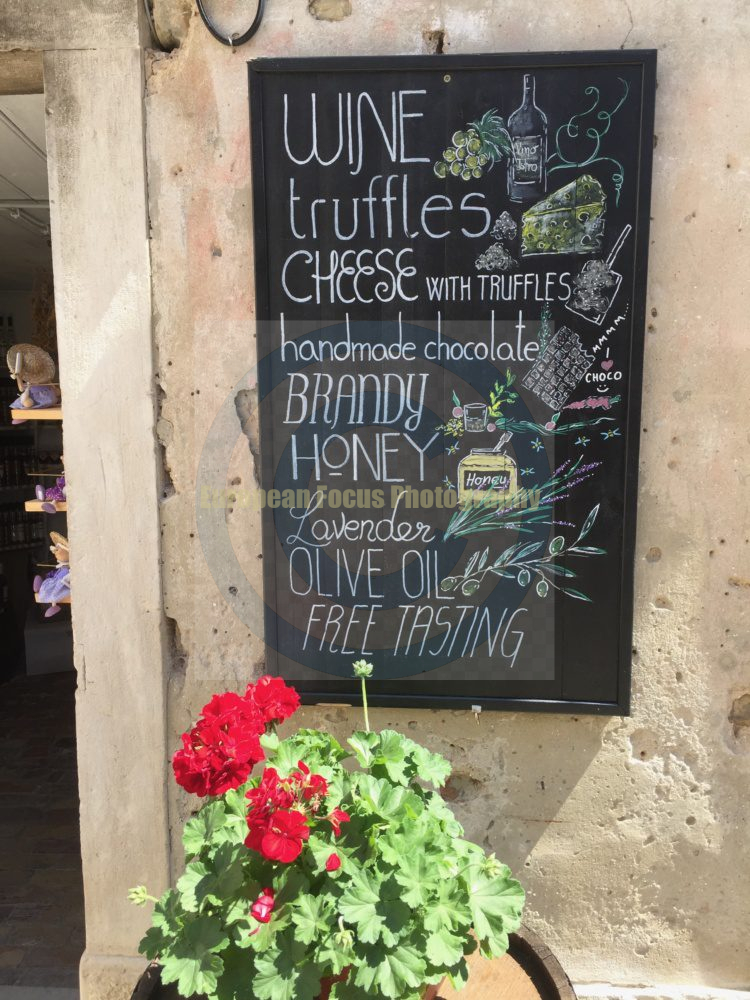 WINE
Vino
truffles
CHEESE WITH TRUFFLES
handmade chocolate
MMMM...
I
CHOCO
BRANDY
HONEY
Honey
European Focus Photography
Lavender
OLIVE OIL
FREE TASTING